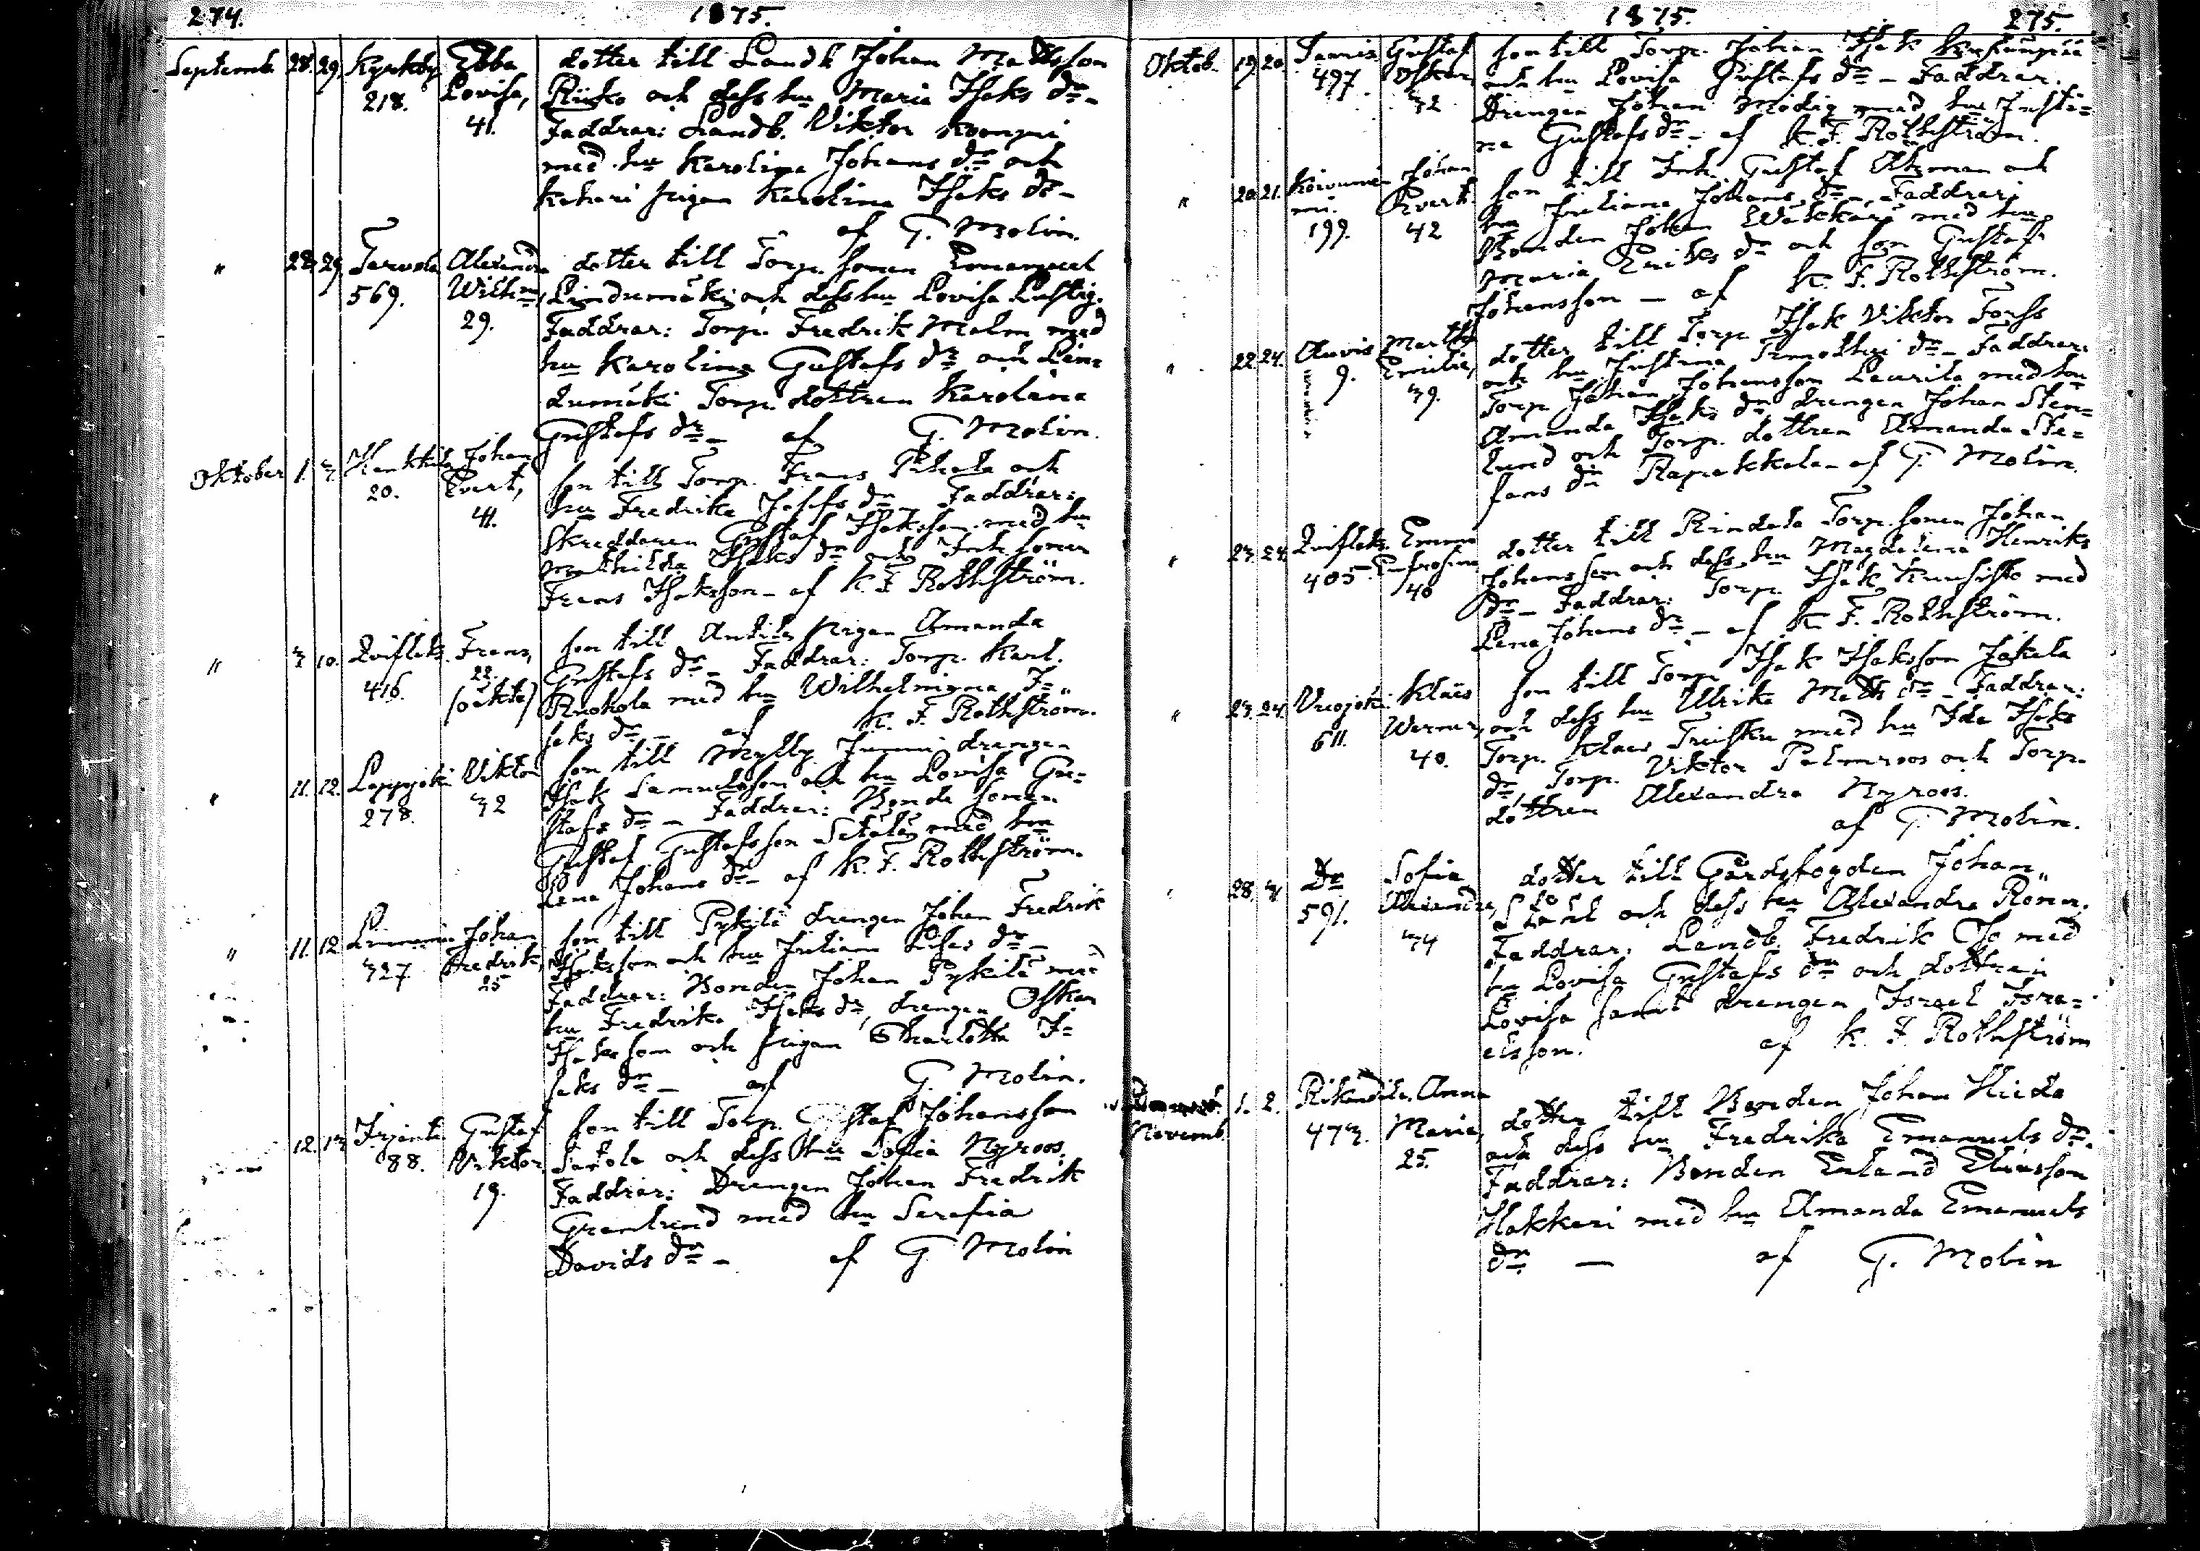 274. 1875.
Septemb. 28. 29. Kyrkoby Ebba dotter till Landb. Johan Mattsson
218. Lovisa, och dess hu Maria Isaks dr –
41. Faddrar: Landb. Viktor
med hu Karolina Johans dr och
pigan Karolina Isaks dr –
af G. Molin.
" 28. 29. Tervola Alexandra dotter till Torp. sonen Emanuel
569. Wilhma, och dess hu Lovisa Lustig.
29. Faddrar: Torp. Fredrik Malm med
hu Karolina Gustafs dr och Lin=
dumäki Torp. dottren Karolina
Gustafs dr – af G. Molin.
Oktober 1. 3. Johan son till Torp. Frans Pihala och
20. Evert, hu Fredrika Josefs dr – Faddrar:
41. Skreddaren Gustaf Isaksson med hu
Mathilda Isaks dr och Inh. sonen
Frans Isaksson – af K. F. Rothström.
" 3. 10. Qvifleks. Frans, son till Anttila pigan Amanda
416. 22. Gustafs dr – Faddrar: Torp. Karl
(oäkta) Ruohola med hu Wilhelmina I=
saks dr – af K. F. Rothström.
" 11. 12. Loppijoki Viktor son till Mylly Jummi drengen
278. 32 Isak Samuelsson och hu Lovisa Gu=
stafs dr – Faddrar: Bonde sonen
Gustaf Gustafsson Setälä med hu
Lena Johans dr – af K. F. Rothström.
" 11. 12. Johan son till Pykilä drengen Johan Fredrik
327 Fredrik, Isaksson och hu Juliana dr –
25 Faddrar: Bonden Johan Pykilä med
hu Fredrika Isaks dr, drengen Oskar
Isaksson och pigan Charlotta I=
saks dr – af G. Molin.
12. 13. Irjante Gustaf son till Torp. Gustaf Johansson
88. Viktor och dess hu Sofia Nyroos.
19. Faddrar: Drengen Johan Fredrik
Granlund med hu Serafia
Davids dr – af G. Molin
1875. 275.
Oktob. 19. 20. Gustaf son till Torp. Johan Isak
497 Oskar och hu Lovisa Gustafs dr – Faddrar.
32 Drengen Johan Modig med hu Justi=
na Gustafs dr – af K. F. Rothström.
" 20. 21. Koivunie= Johan son till Inh. Gustaf och
mi. Evert. hu Juliana Johans dr – Faddrar:
199. 42 Bonden Johan med hu
Maria Eriks dr och son Gustaf
Johansson – af K. F. Rothström.
" 22. 24. Auvis Martha dotter till Torp. Isak Viktor Forss
9. Emilia, och hu Justina Timothei dr – Faddrar:
39. Torp. Johan Johansson Laurila med hu
Amanda Isaks dr, drengen Johan Sten=
lund och Torp. dottren Amanda Ste=
fans dr Rapakkola – af G. Molin.
" 23. 24. Qvifleks. Emma dotter till Rindala Torp. sonen Johan
405 Eufrosina Johansson och dess hu Magdalena Henriks
40 dr – Faddrar: Torp. Isak Kuusisto med
Lena Johans dr – af K. F. Rothström.
" 23. 24. Vuojoki Klaes son till Torp. Isak Isaksson Jakola
611. Werner, och dess hu Ulrika Matts dr – Faddrar:
40. Torp. Klaes med hu Ida Isaks
dr Torp. Viktor Palmroos och Torp.
dottren Alexandra Nyroos.
af G. Molin.
" 28. 31 Do Sofia dotter till Gårdsfogden Johan
591. Alexandra, Ståhl och dess hu Alexandra Renn.
34 Faddrar: Landb. Fredrik Oja med
hu Lovisa Gustafs dr och dottren
Lovisa samt drengen Israel Isra=
elsson. af K. F. Rothström
Novemb. 1. 2. Rikandila. Anna dotter till Bonden Johan Hiida
473. Maria, och dess hu Fredrika Emanuels dr.
25. Faddrar: Bonden Erland Eliasson
Hakkari med hu Amanda Emanuels
dr – af G. Molin